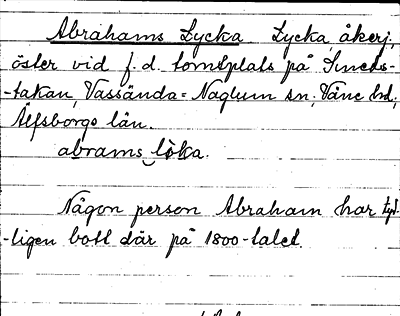 Abrahams Lycka Lycka, åkerj,
öster vid f.d. tomtplats på Smeds-
-takan, Vassända=Naglum sn, Väne hd,
Älfsborgs län.
abrams lӧka.
Någon person Abraham har tyd-
-ligen bott där på 1800-talet.